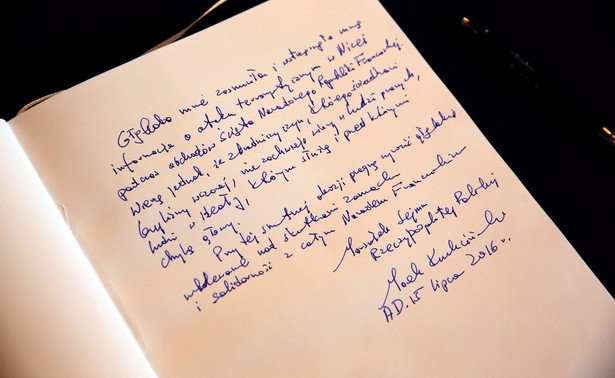 Głęboko mnie zasmuciła i wstrząsnęła mną
informacja o ataku terrorystycznym w Nicei
podczas obchodów Święta Narodowego Republiki Francuskiej.
Wierzę jednak, że zbrodniczy czyn, którego świadkami
byliśmy wczoraj, nie zachwieje wiary ludzi prawych,
ludzi w ideały, którym służą i przed którymi
chylą głowy.
Przy tej smutnej okazji pragnę wyrazić głębokie
ubolewanie nad skutkami zamachu
i solidarność z całym Narodem Francuskim
Marszałek Sejmu
Rzeczypospolitej Polskiej
Marek Kuchciński
AD. 15 lipca 2016 r.